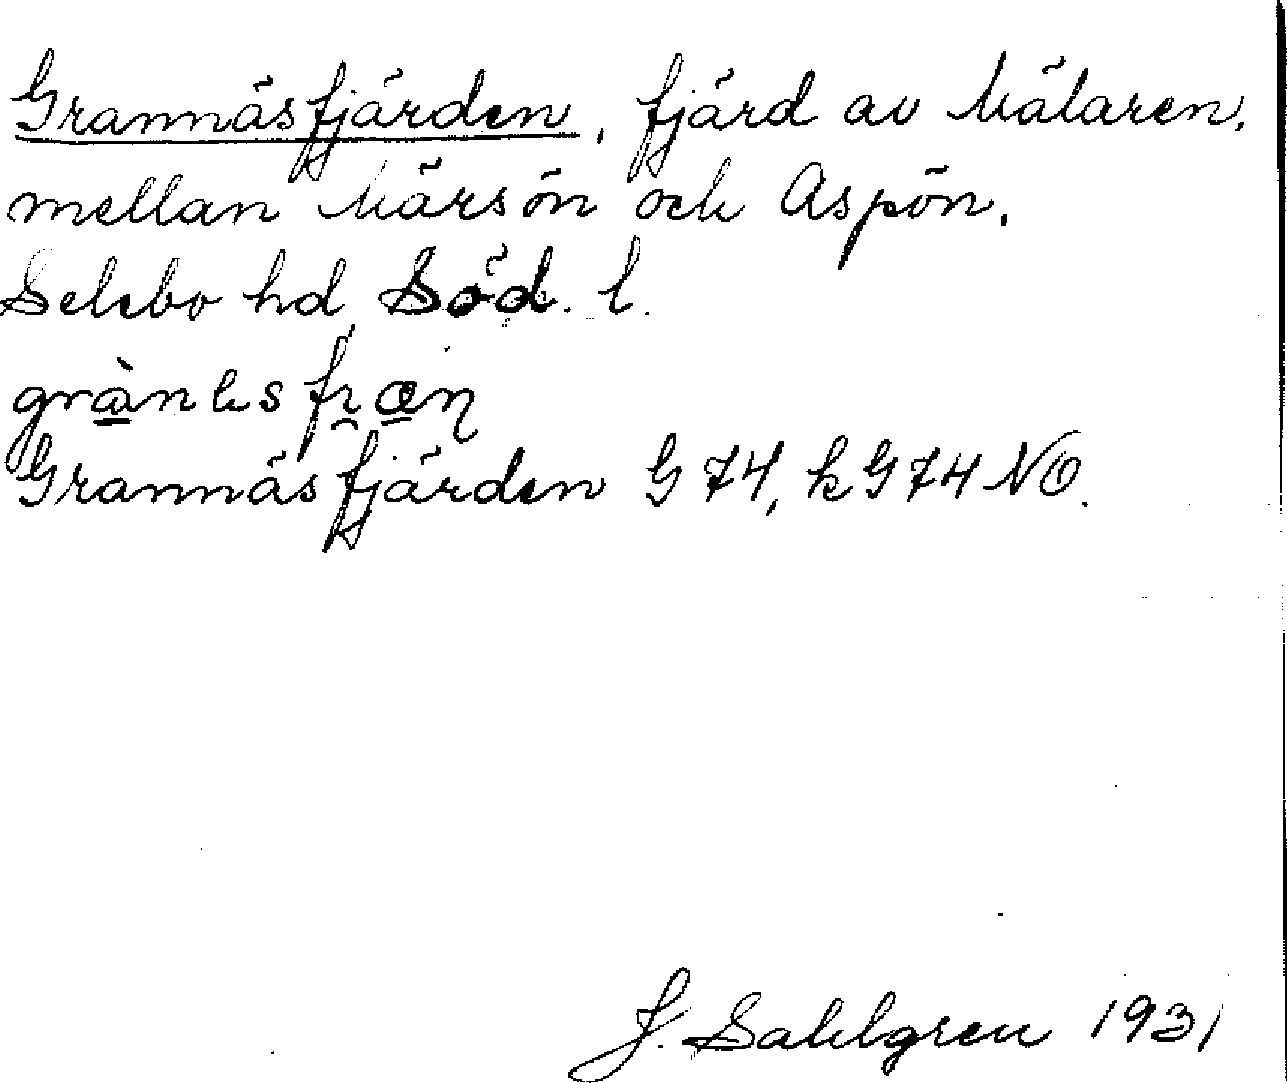 Grannäsfjärden, fjärd av Mälaren,
mellan Märsön och Aspön.
Selebo hd, Söd. l.
Grannäsfjärden G 74, k G 74 NO.
J. Sahlgren 1931